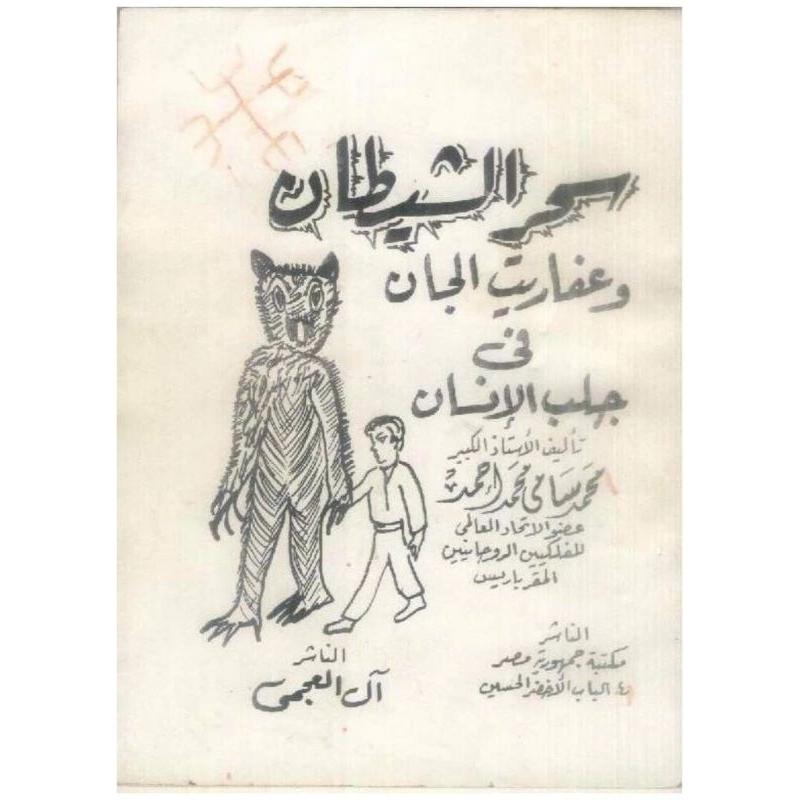 سحر الشيطان
وعفاريت الجان
فى
جلب الإنسان
تأليف الأستاذ الكبير
محمد سامى محمد أحمد
عضو الاتحاد العالمى
للفلكيين الروحانيين
المقر باريس
الناشر
مكتبة جمهورية مصر
٤ الباب الأخضر الحسين
الناشر
آل العجمى